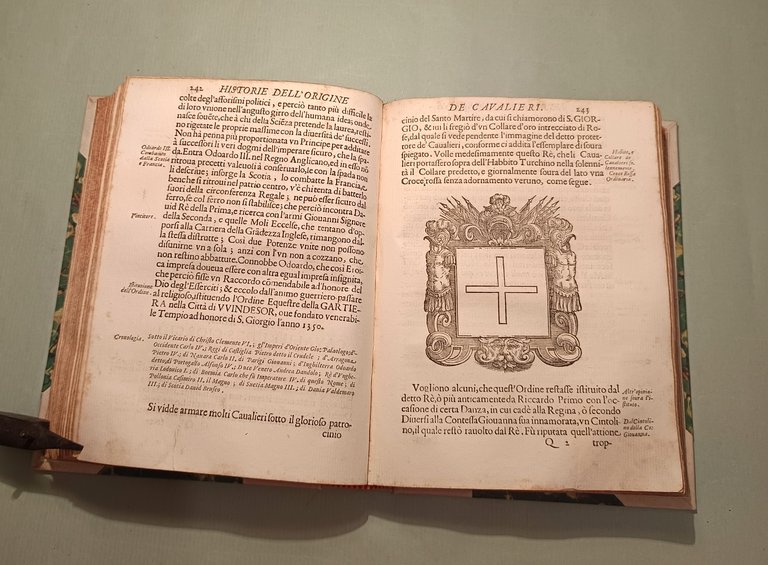 242 HISTORIE DELL'ORIGINE
colte degl'afforismi politici, e perciò tanto più difficile la
di loro vnione nell'angusto girro dell'humana idea; onde
nasce souẽte, che à chi della Sciẽza pretende la laurea, resti-
no rigetate le proprie massime con la diuersità de' successi.
Non hà penna più proportionata vn Principe per additare
à successori li veri dogmi dell'imperare sicuro, che la spa-
da. Entra Odoardo III. nel Regno Anglicano, ed in esso nõ
ritroua precetti valeuoli à conseruarlo, se con la spada non
li descriue; insorge la Scotia, lo combatte la Francia, e
benche si ritroui nel patrio centro, v'è chi tenta di batterlo
fuori della circonferenza Regale; ne può esser sicuro dal
ferro, se col ferro non si stabilisce; che perciò incontra Da-
uid Rè della Prima, e ricerca con l'armi Giouanni Signore
della Seconda, e quelle Moli Eccelse, che tentano d'op-
porsi alla Carriera della Grãdezza Inglese, rimangono dal-
la stessa distrutte; Così due Potenze vnite non possono
disunirne vn a sola; anzi con l'vn non a cozzano, che
non restino abbattute. Connobbe Odoardo, che così Eroi-
ca impresa doueua essere con altra egual impresa insignita,
che perciò fisse vn Raccordo cõmendabile ad honore del
Dio degl'Esserciti; & eccolo dall'animo guerriero passare
al religioso, istituendo l'Ordine Equestre della GARTIE-
RA nella Città di VVINDESOR, oue fondato venerabi-
le Tempio ad honore di S. Giorgio l'anno 1350.
Odoardo III.
Combattuto
dalla Scotia
e Francia.
Vincitore.
Istituzione
dell'Ordine.
Cronologia.
Sotto il Vicario di Christo Clemente VI.; gl'Imperi d'Oriente Gio: Paleologo; d'-
Occidente Carlo IV.; Regi di Castiglia Pietro detto il Crudele; d'Arragona
Pietro IV.; di Nauara Carlo II. di Parigi Giouanni, d'Inghilterra Odoardo
detto; di Portogallo Alfonso IV.; Duce Veneto Andrea Dandolo; Rè d'Vnghe-
ria Lodouico I.; di Boemia Carlo che fù Imperatore IV. di questo Nome; di
Pollonia Casimiro II. il Magno; di Suetia Magno III.; di Dania Valdemaro
III.; di Scotia Dauid Brusco.
Si vidde armare molti Caualieri sotto il glorioso patro-
cinio
DE CAVALIERI. 243
cinio del Santo Martire, da cui si chiamorono di S. GIOR-
GIO, & iui li fregiò d'vn Collare d'oro intrecciato di Ro-
se, dal quale si vede pendente l'immagine del detto protet-
tore de' Caualieri, conforme ci addita l'essemplare di soura
spiegato. Volle medesimamente questo Rè, che li Caua-
lieri portassero sopra dell'Habbito Turchino nella solenni-
tà il Collare predetto, e giornalmente soura del lato vna
Croce, rossa senza adornamento veruno, come segue.
Habito, e
Collare de
Caualieri so-
lennemente.
Croce Rossa
Ordinaria.
Vogliono alcuni, che quest'Ordine restasse istituito dal
detto Rè, ò più anticamente da Riccardo Primo con l'oc-
casione di certa Danza, in cui cadè alla Regina, ò secondo
Diuersi alla Contessa Giouanna sua innamorata, vn Cintoli-
no, il quale restò rauolto dal Rè. Fù riputata quell'attione
Altr'opinio-
ne soura l'i-
stituto.
Dal Cintoli-
no della Cõ:
Giouanna.
Q 2 trop-